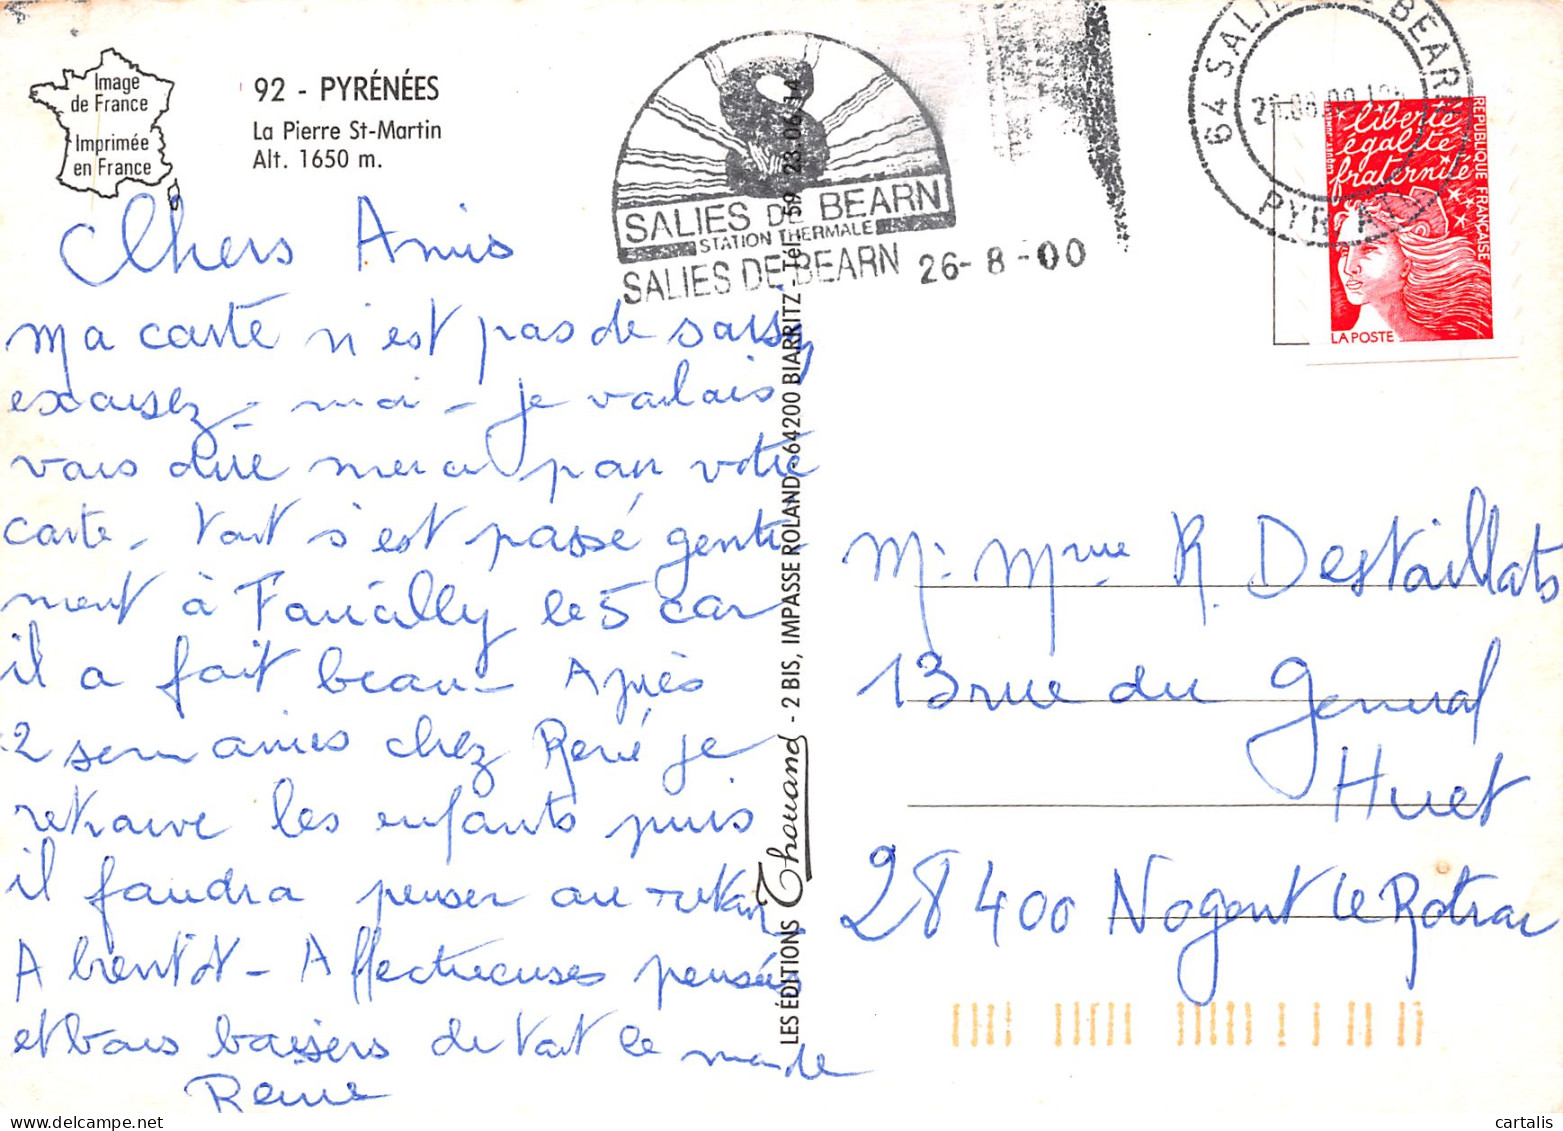 Image
de France
Imprimée
en France
92 - PYRÉNÉES
La Pierre St-Martin
Alt. 1650 m.
Chers Amis
Ma carte n'est pas de saison
excusez-moi - je voulais
vous dire merci pour votre
carte - Tout s'est passé genti-
ment à le 5 car
il a fait beau - Après
2 semaines chez René je
retrouve les enfants puis
il faudra penser au retour
A bientôt - Affectueuses pensées
et bons baisers de tout le monde
Reine
LES ÉDITIONS Thouand - 2 BIS, IMPASSE ROLAND - 64200 BIARRITZ - Tél. 59 23.06.14
SALIES DE BEARN
STATION THERMALE
SALIES DE BEARN 26-8-00
64 SALIES DE BEARN
PYR. ATL
liberté
égalité
fraternité
REPUBLIQUE FRANÇAISE
LA POSTE
Mr Mme R. Destaillats
13 rue du General
Huet
28400 Nogent le Rotrou
cartalis